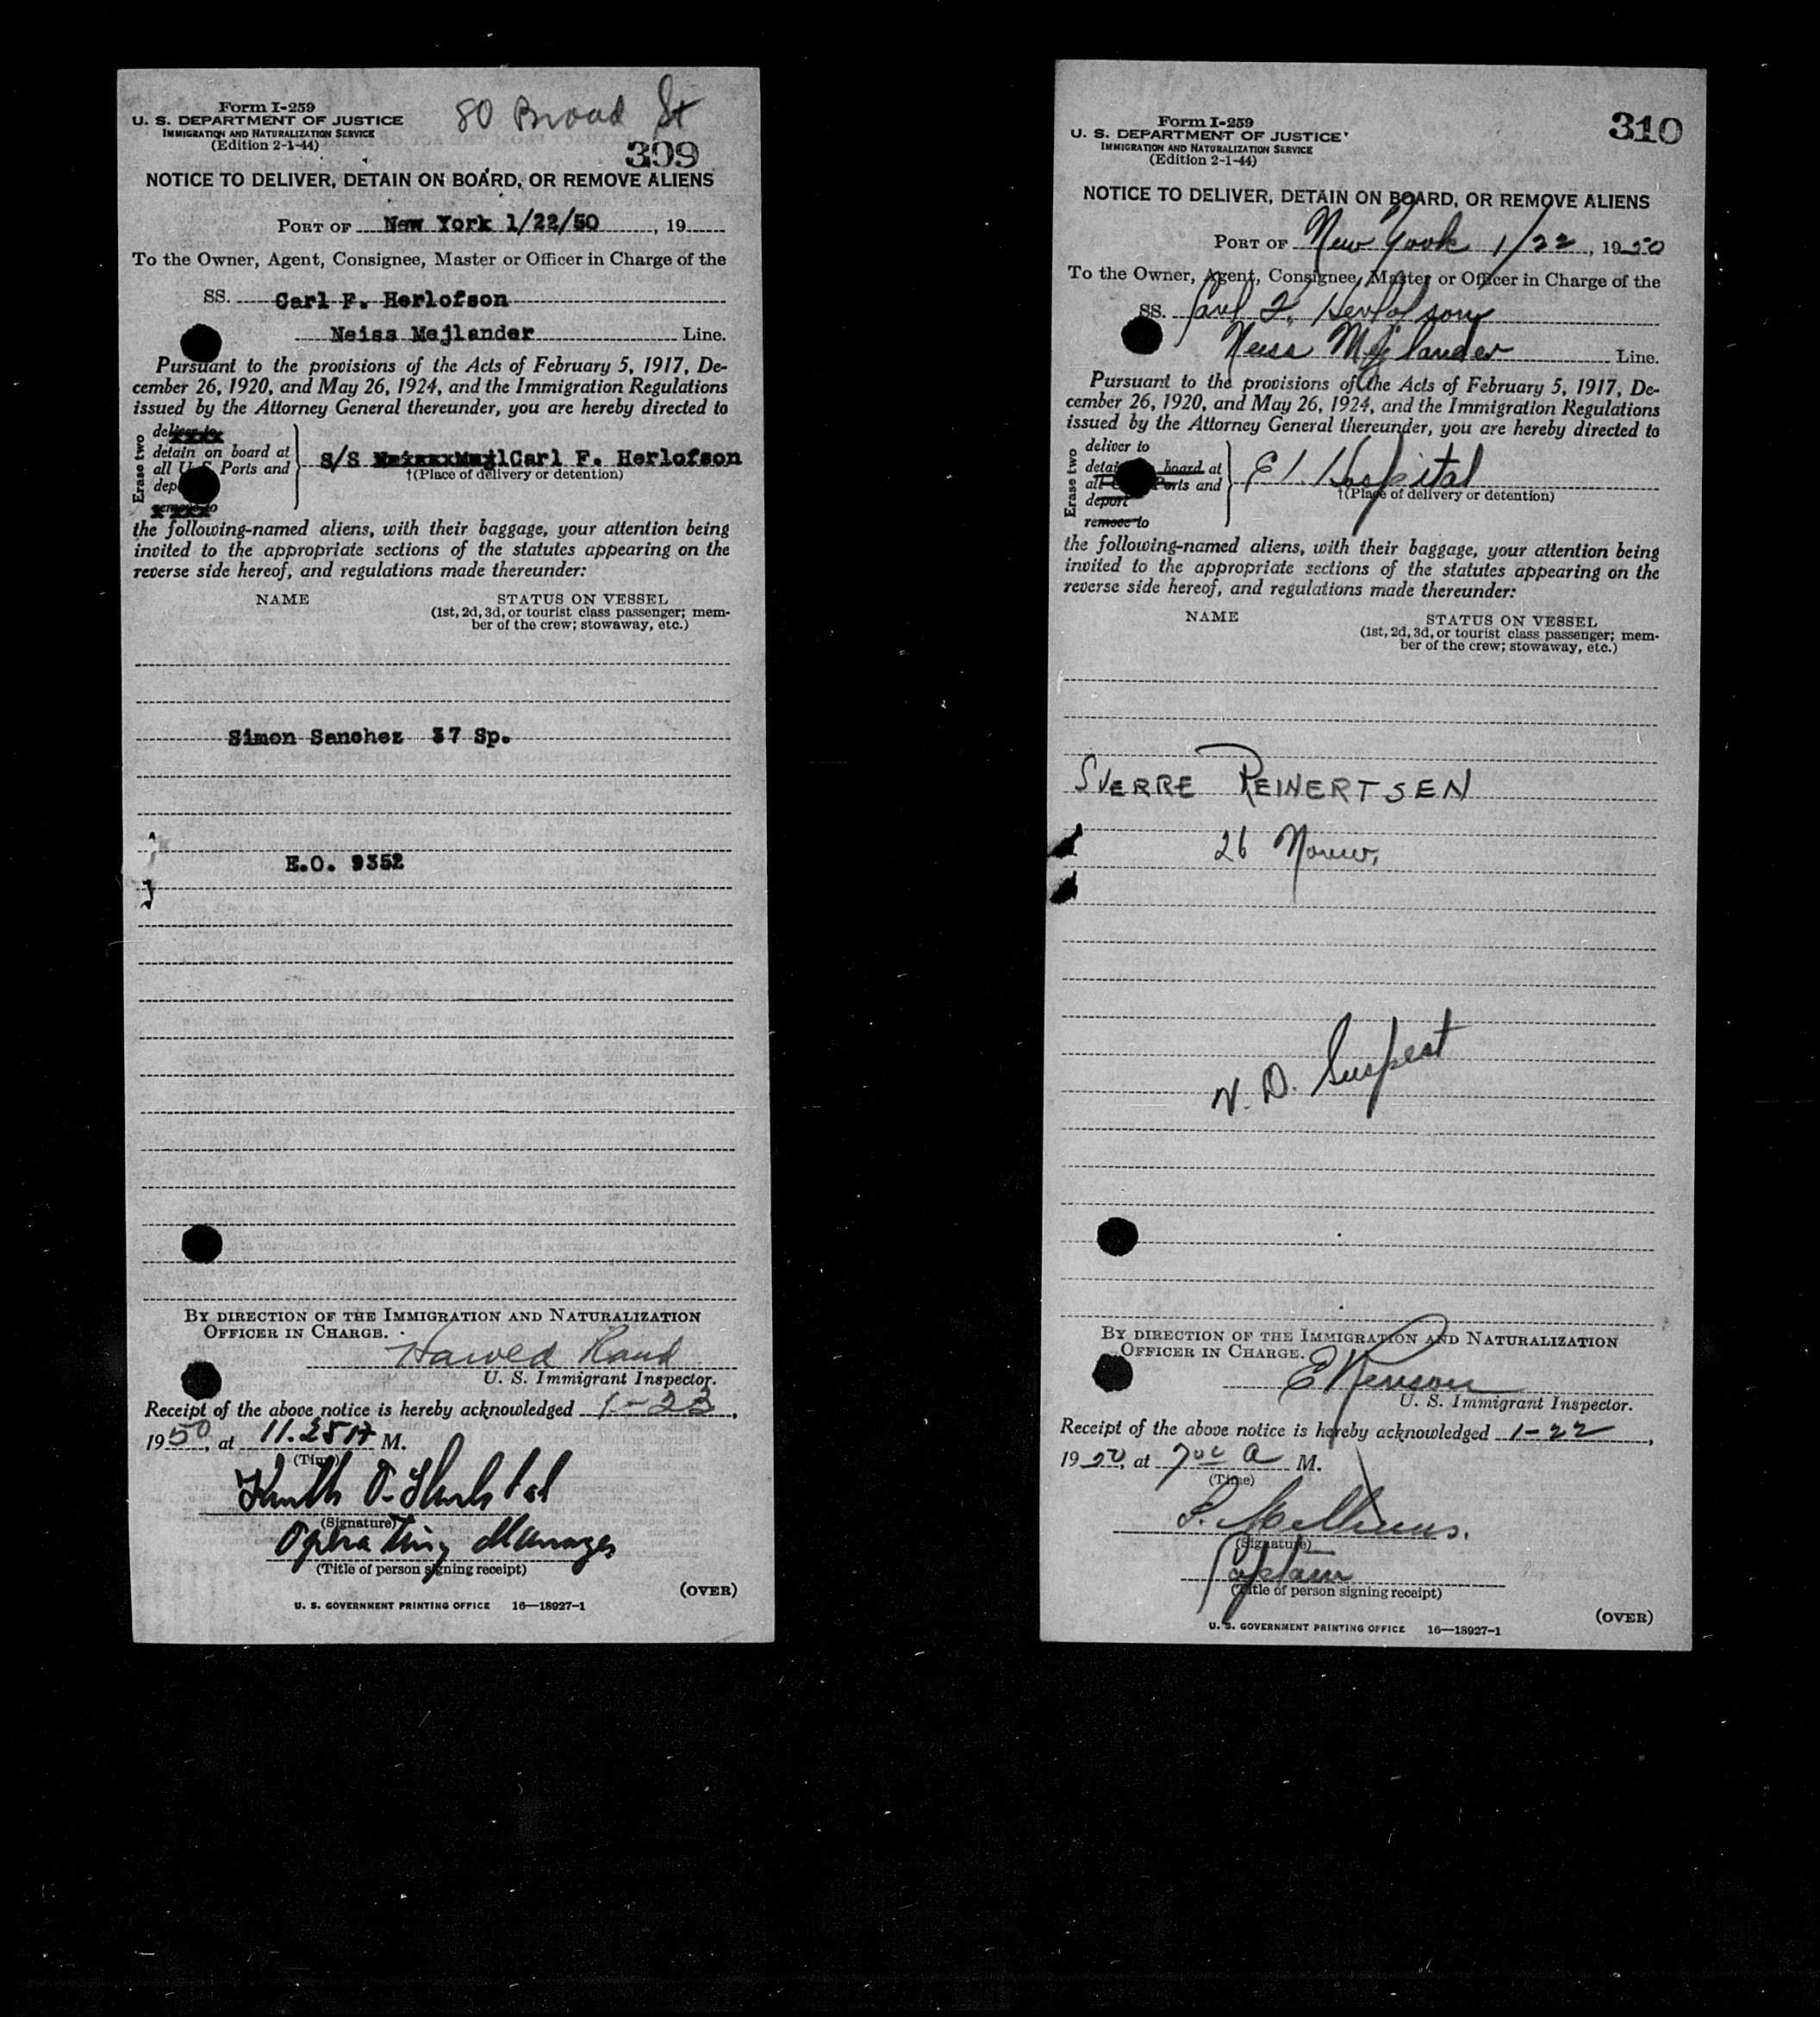 Form I-259
U. S. DEPARTMENT OF JUSTICE
IMMIGRATION AND NATURALIZATION SERVICE
(Edition 2-1-44)
80 Broad St
309
NOTICE TO DELIVER, DETAIN ON BOARD, OR REMOVE ALIENS
PORT OF New York 1/22/50, 19
To the Owner, Agent, Consignee, Master or Officer in Charge of the
SS. Carl F. Herlofson
Neiss Mejlander Line.
Pursuant to the provisions of the Acts of February 5, 1917, De-
cember 26, 1920, and May 26, 1924, and the Immigration Regulations
issued by the Attorney General thereunder, you are hereby directed to
Erase two
deliver to
detain on board at
all U S Ports and
dep
remove to
S/S Carl F. Herlofson
†(Place of delivery or detention)
the following-named aliens, with their baggage, your attention being
invited to the appropriate sections of the statutes appearing on the
reverse side hereof, and regulations made thereunder:
NAME STATUS ON VESSEL
(1st, 2d, 3d, or tourist class passenger; mem-
ber of the crew; stowaway, etc.)
Simon Sanchez 37 Sp.
E.O. 9352
BY DIRECTION OF THE IMMIGRATION AND NATURALIZATION
OFFICER IN CHARGE.
Harold Rand
U. S. Immigrant Inspector.
Receipt of the above notice is hereby acknowledged 1-23,
1950, at 11.25 A M.
(Time)
(Signature)
Operating Manager
(Title of person signing receipt)
(OVER)
U. S. GOVERNMENT PRINTING OFFICE 16—18927-1
Form I-259
U. S. DEPARTMENT OF JUSTICE
IMMIGRATION AND NATURALIZATION SERVICE
(Edition 2-1-44)
310
NOTICE TO DELIVER, DETAIN ON BOARD, OR REMOVE ALIENS
PORT OF New York 1/22, 1950
To the Owner, Agent, Consignee, Master or Officer in Charge of the
SS. Carl F. Herlofson
Neiss Mejlander Line.
Pursuant to the provisions of the Acts of February 5, 1917, De-
cember 26, 1920, and May 26, 1924, and the Immigration Regulations
issued by the Attorney General thereunder, you are hereby directed to
Erase two
deliver to
board at
Ports and
deport
remove to
E I. Hospital
†(Place of delivery or detention)
the following-named aliens, with their baggage, your attention being
invited to the appropriate sections of the statutes appearing on the
reverse side hereof, and regulations made thereunder:
NAME STATUS ON VESSEL
(1st, 2d, 3d, or tourist class passenger; mem-
ber of the crew; stowaway, etc.)
SVERRE REINERTSEN
26 Norw.
V. D. Suspect
BY DIRECTION OF THE IMMIGRATION AND NATURALIZATION
OFFICER IN CHARGE.
U. S. Immigrant Inspector.
Receipt of the above notice is hereby acknowledged 1-22,
1950, at 7 00 A M.
(Time)
(Signature)
Captain
(Title of person signing receipt)
(OVER)
U. S. GOVERNMENT PRINTING OFFICE 16—18927-1